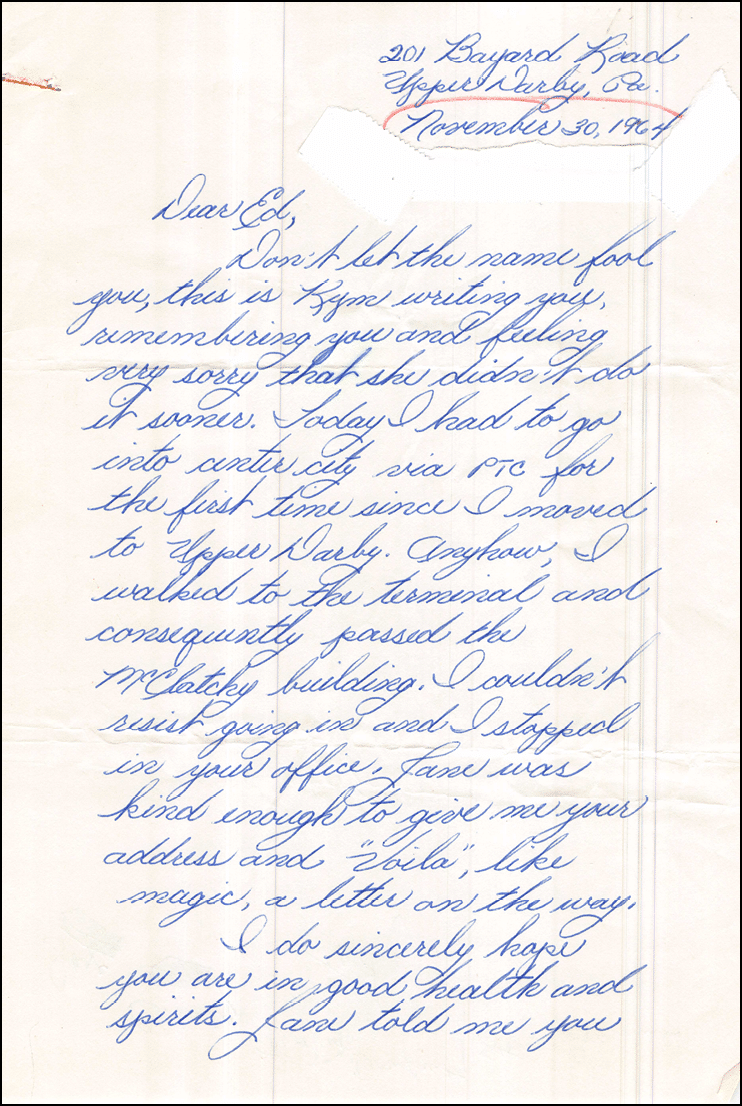 201 Bayard Road
Upper Darby, Pa.
November 30, 1964
Dear Ed,
Don't let the name fool
you, this is Kym writing you,
remembering you and feeling
very sorry that she didn't do
it sooner. Today I had to go
into center city via PTC for
the first time since I moved
to Upper Darby. Anyhow, I
walked to the terminal and
consequently passed the
McClatchy building. I couldn't
resist going in and I stopped
in your office. Jane was
kind enough to give me your
address and "Voila", like
magic, a letter on the way.
I do sincerely hope
you are in good health and
spirits. Jane told me you